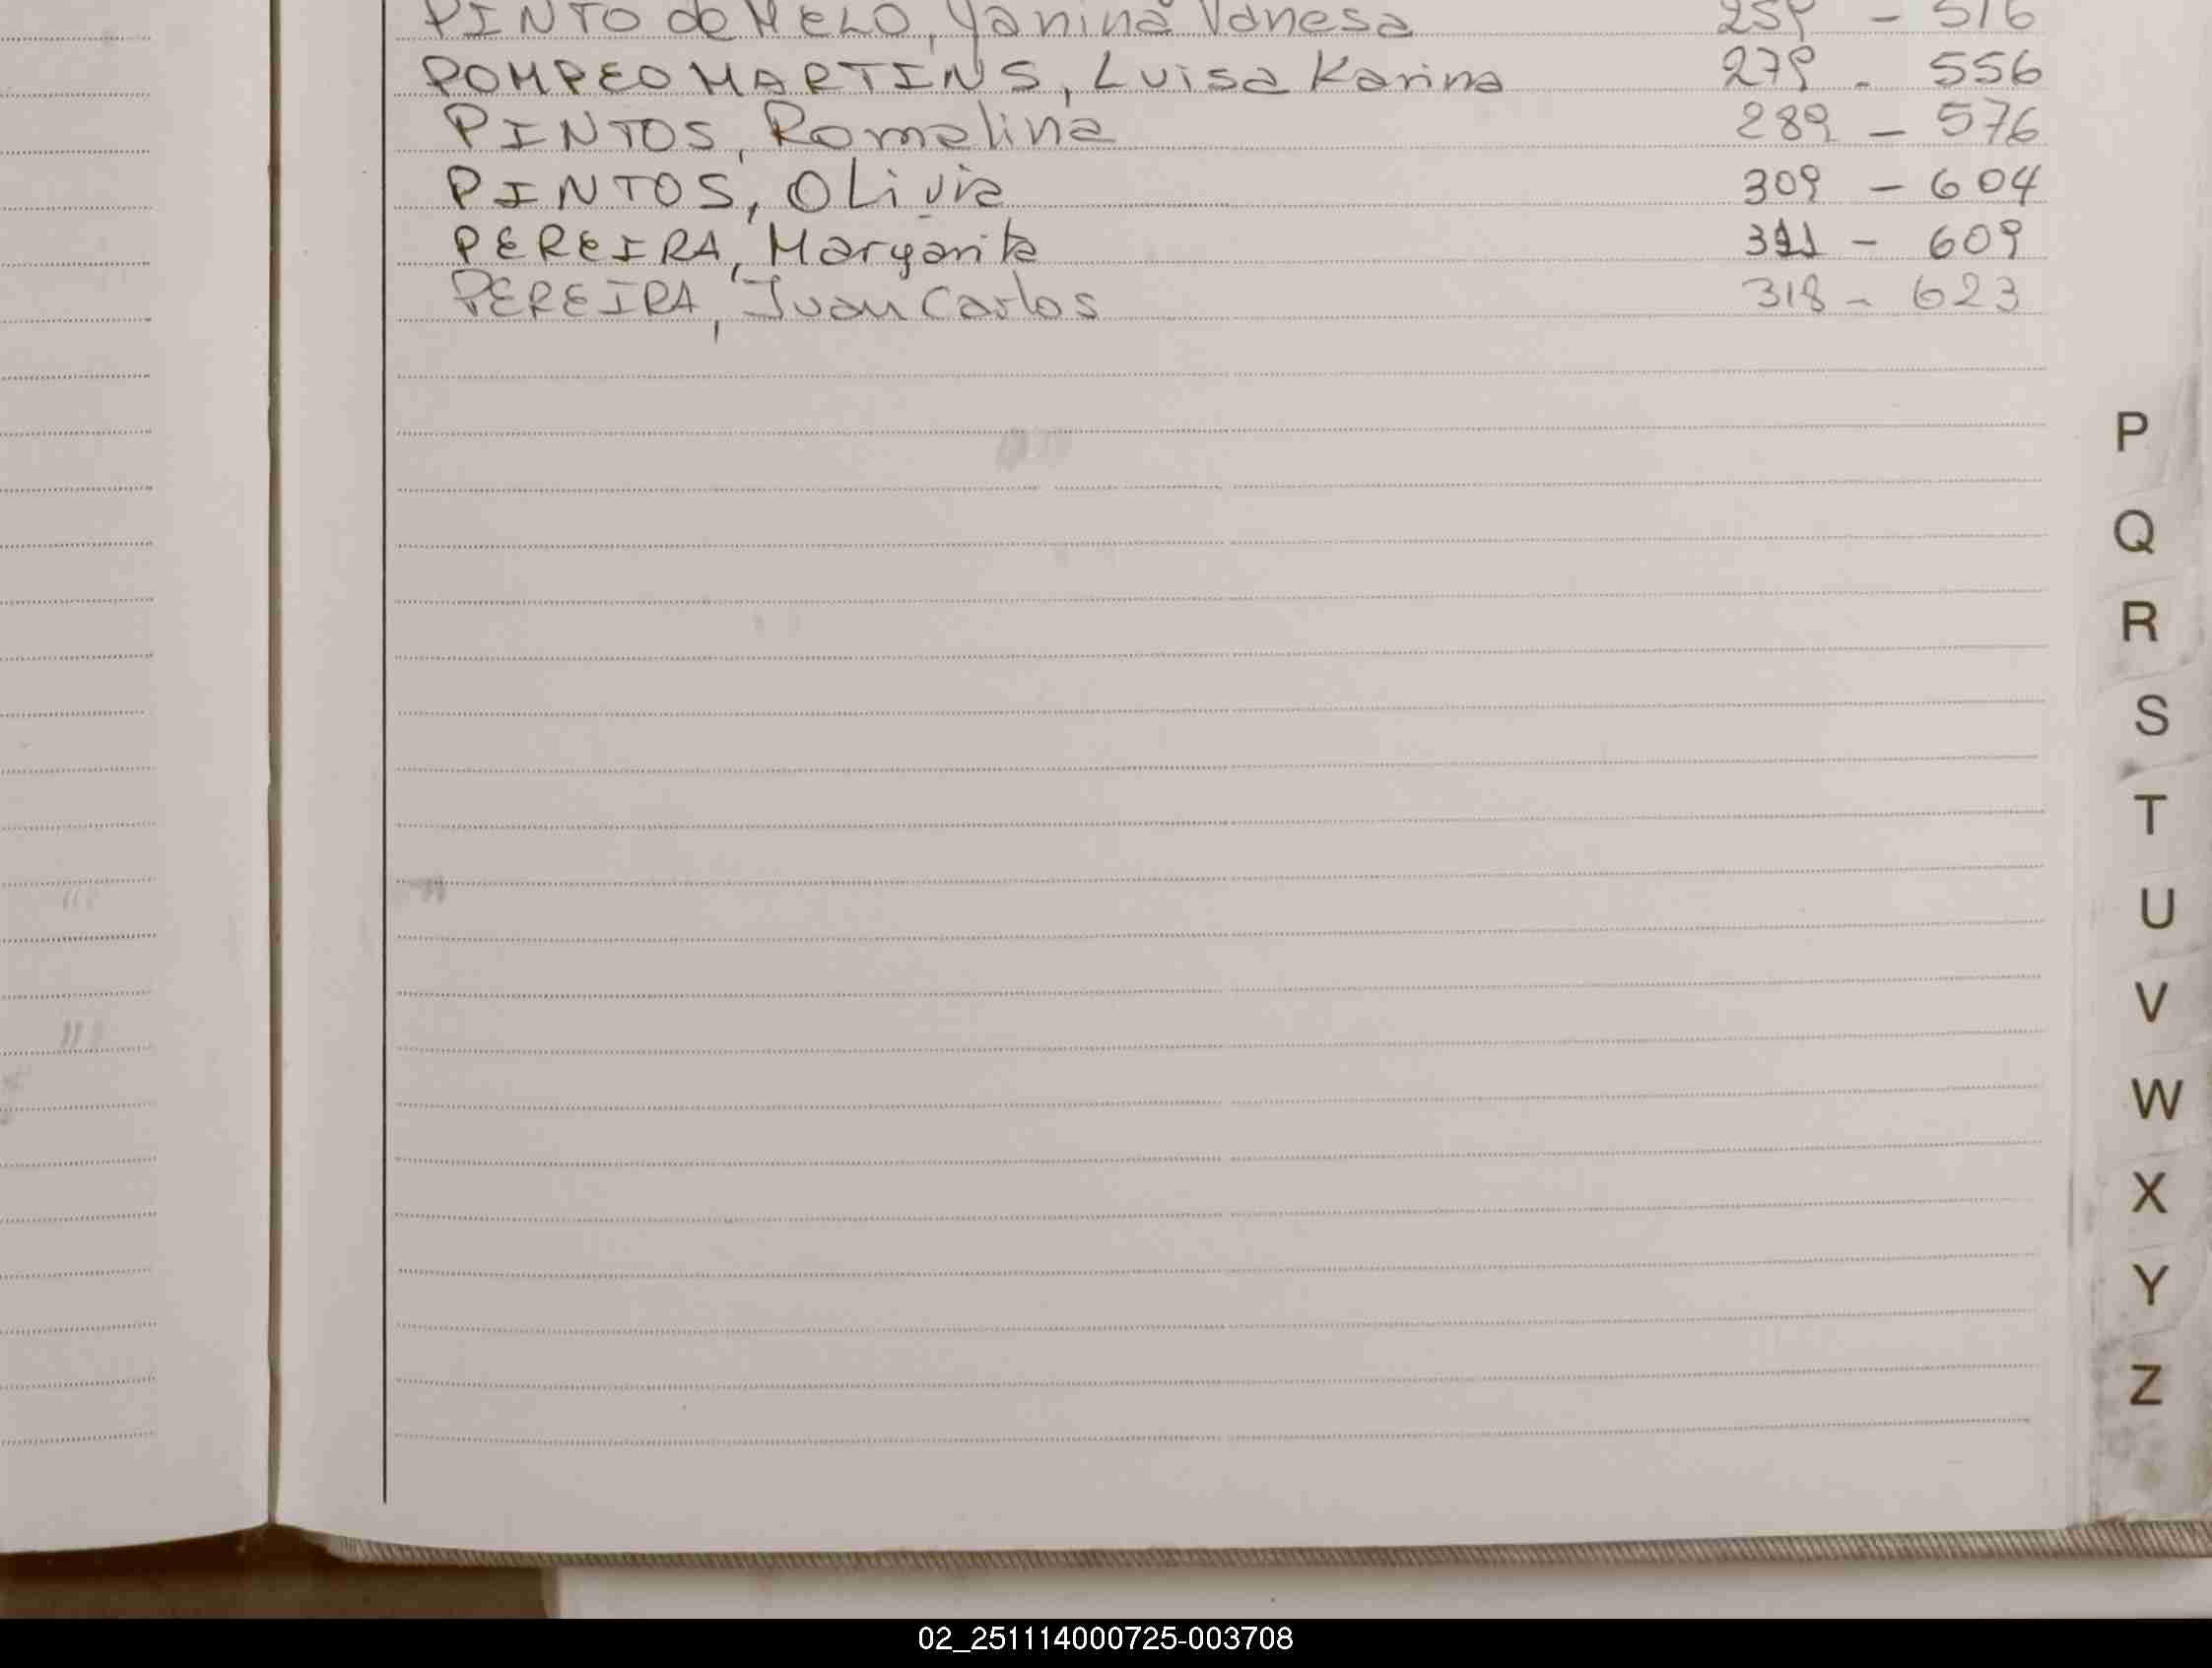 PINTO de MELO, Yanina Vanesa 259 - 516
POMPEO MARTINS, Luisa Karina 279 - 556
PINTOS, Romelina 289 - 576
PINTOS, OLivia 309 - 604
PEREIRA, Margarita 311 - 609
PEREIRA, Juan Carlos 318 - 623
P
Q
R
S
T
U
V
W
X
Y
Z
02_251114000725-003708